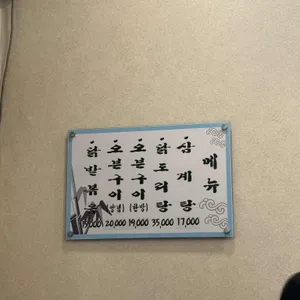 메뉴
삼계탕 17,000
닭도리탕 35,000
오븐구이 (한방) 19,000
오븐구이 20,000
닭발볶음